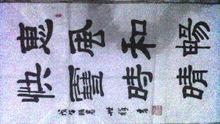 惠風和暢
快雪時晴